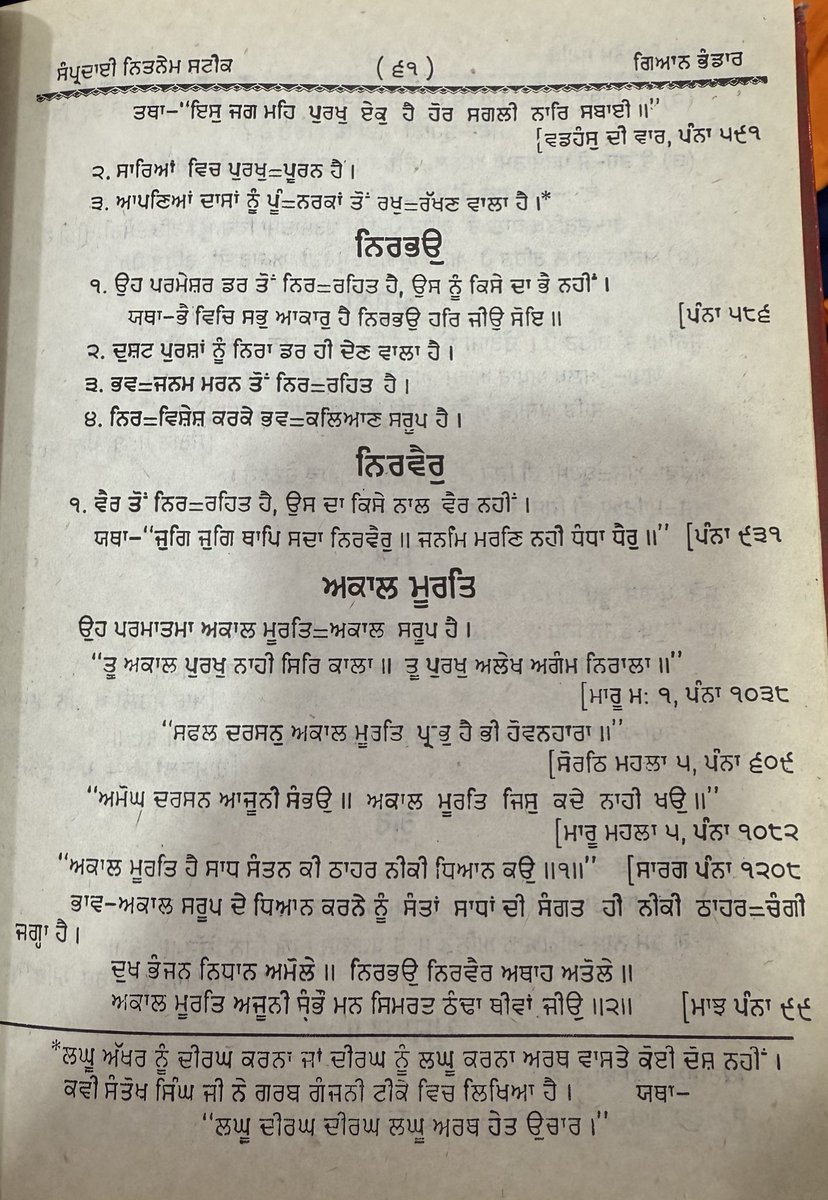 ਸੰਪ੍ਰਦਾਈ ਨਿਤਨੇਮ ਸਟੀਕ ( ੬੧ ) ਗਿਆਨ ਭੰਡਾਰ
ਤਥਾ-“ਇਸੁ ਜਗ ਮਹਿ ਪੁਰਖੁ ਏਕੁ ਹੈ ਹੋਰ ਸਗਲੀ ਨਾਰਿ ਸਬਾਈ ॥”
[ਵਡਹੰਸੁ ਦੀ ਵਾਰ, ਪੰਨਾ ੫੯੧
੨. ਸਾਰਿਆਂ ਵਿਚ ਪੁਰਖੁ=ਪੂਰਨ ਹੈ ।
੩. ਆਪਣਿਆਂ ਦਾਸਾਂ ਨੂੰ ਪੂੰ=ਨਰਕਾਂ ਤੋਂ ਰਖੁ=ਰੱਖਣ ਵਾਲਾ ਹੈ ।*
ਨਿਰਭਉ
੧. ਉਹ ਪਰਮੇਸ਼ਰ ਡਰ ਤੋਂ ਨਿਰ=ਰਹਿਤ ਹੈ, ਉਸ ਨੂੰ ਕਿਸੇ ਦਾ ਭੈ ਨਹੀਂ ।
ਯਥਾ-ਭੈ ਵਿਚਿ ਸਭੁ ਆਕਾਰੁ ਹੈ ਨਿਰਭਉ ਹਰਿ ਜੀਉ ਸੋਇ ॥ [ਪੰਨਾ ੫੮੬
੨. ਦੁਸ਼ਟ ਪੁਰਸ਼ਾਂ ਨੂੰ ਨਿਰਾ ਡਰ ਹੀ ਦੇਣ ਵਾਲਾ ਹੈ ।
੩. ਭਵ=ਜਨਮ ਮਰਨ ਤੋਂ ਨਿਰ=ਰਹਿਤ ਹੈ ।
੪. ਨਿਰ=ਵਿਸ਼ੇਸ਼ ਕਰਕੇ ਭਵ=ਕਲਿਆਣ ਸਰੂਪ ਹੈ ।
ਨਿਰਵੈਰੁ
੧. ਵੈਰ ਤੋਂ ਨਿਰ=ਰਹਿਤ ਹੈ, ਉਸ ਦਾ ਕਿਸੇ ਨਾਲ ਵੈਰ ਨਹੀਂ ।
ਯਥਾ-“ਜੁਗਿ ਜੁਗਿ ਥਾਪਿ ਸਦਾ ਨਿਰਵੈਰੁ ॥ ਜਨਮਿ ਮਰਣਿ ਨਹੀ ਧੰਧਾ ਧੈਰੁ ॥” [ਪੰਨਾ ੯੩੧
ਅਕਾਲ ਮੂਰਤਿ
ਉਹ ਪਰਮਾਤਮਾ ਅਕਾਲ ਮੂਰਤਿ=ਅਕਾਲ ਸਰੂਪ ਹੈ ।
“ਤੂ ਅਕਾਲ ਪੁਰਖੁ ਨਾਹੀ ਸਿਰਿ ਕਾਲਾ ॥ ਤੂ ਪੁਰਖੁ ਅਲੇਖ ਅਗੰਮ ਨਿਰਾਲਾ ॥”
[ਮਾਰੂ ਮ: ੧, ਪੰਨਾ ੧੦੩੮
“ਸਫਲ ਦਰਸਨੁ ਅਕਾਲ ਮੂਰਤਿ ਪ੍ਰਭੁ ਹੈ ਭੀ ਹੋਵਨਹਾਰਾ ॥”
[ਸੋਰਠਿ ਮਹਲਾ ੫, ਪੰਨਾ ੬੦੯
“ਅਮੋਘ ਦਰਸਨ ਆਜੂਨੀ ਸੰਭਉ ॥ ਅਕਾਲ ਮੂਰਤਿ ਜਿਸੁ ਕਦੇ ਨਾਹੀ ਖਉ ॥”
[ਮਾਰੂ ਮਹਲਾ ੫, ਪੰਨਾ ੧੦੮੨
“ਅਕਾਲ ਮੂਰਤਿ ਹੈ ਸਾਧ ਸੰਤਨ ਕੀ ਠਾਹਰ ਨੀਕੀ ਧਿਆਨ ਕਉ ॥੧॥” [ਸਾਰਗ ਪੰਨਾ ੧੨੦੮
ਭਾਵ-ਅਕਾਲ ਸਰੂਪ ਦੇ ਧਿਆਨ ਕਰਨੇ ਨੂੰ ਸੰਤਾਂ ਸਾਧਾਂ ਦੀ ਸੰਗਤ ਹੀ ਨੀਕੀ ਠਾਹਰ=ਚੰਗੀ
ਜਗ੍ਹਾ ਹੈ ।
ਦੁਖ ਭੰਜਨ ਨਿਧਾਨ ਅਮੋਲੇ ॥ ਨਿਰਭਉ ਨਿਰਵੈਰ ਅਥਾਹ ਅਤੋਲੇ ॥
ਅਕਾਲ ਮੂਰਤਿ ਅਜੂਨੀ ਸੰਭੌ ਮਨ ਸਿਮਰਤ ਠੰਢਾ ਥੀਵਾਂ ਜੀਉ ॥੨॥ [ਮਾਝ ਪੰਨਾ ੯੯
*ਲਘੂ ਅੱਖਰ ਨੂੰ ਦੀਰਘ ਕਰਨਾ ਜਾਂ ਦੀਰਘ ਨੂੰ ਲਘੂ ਕਰਨਾ ਅਰਥ ਵਾਸਤੇ ਕੋਈ ਦੋਸ਼ ਨਹੀਂ ।
ਕਵੀ ਸੰਤੋਖ ਸਿੰਘ ਜੀ ਨੇ ਗਰਬ ਗੰਜਨੀ ਟੀਕੇ ਵਿਚ ਲਿਖਿਆ ਹੈ । ਯਥਾ-
“ਲਘੂ ਦੀਰਘ ਦੀਰਘ ਲਘੂ ਅਰਥ ਹੇਤ ਉਚਾਰ ।”